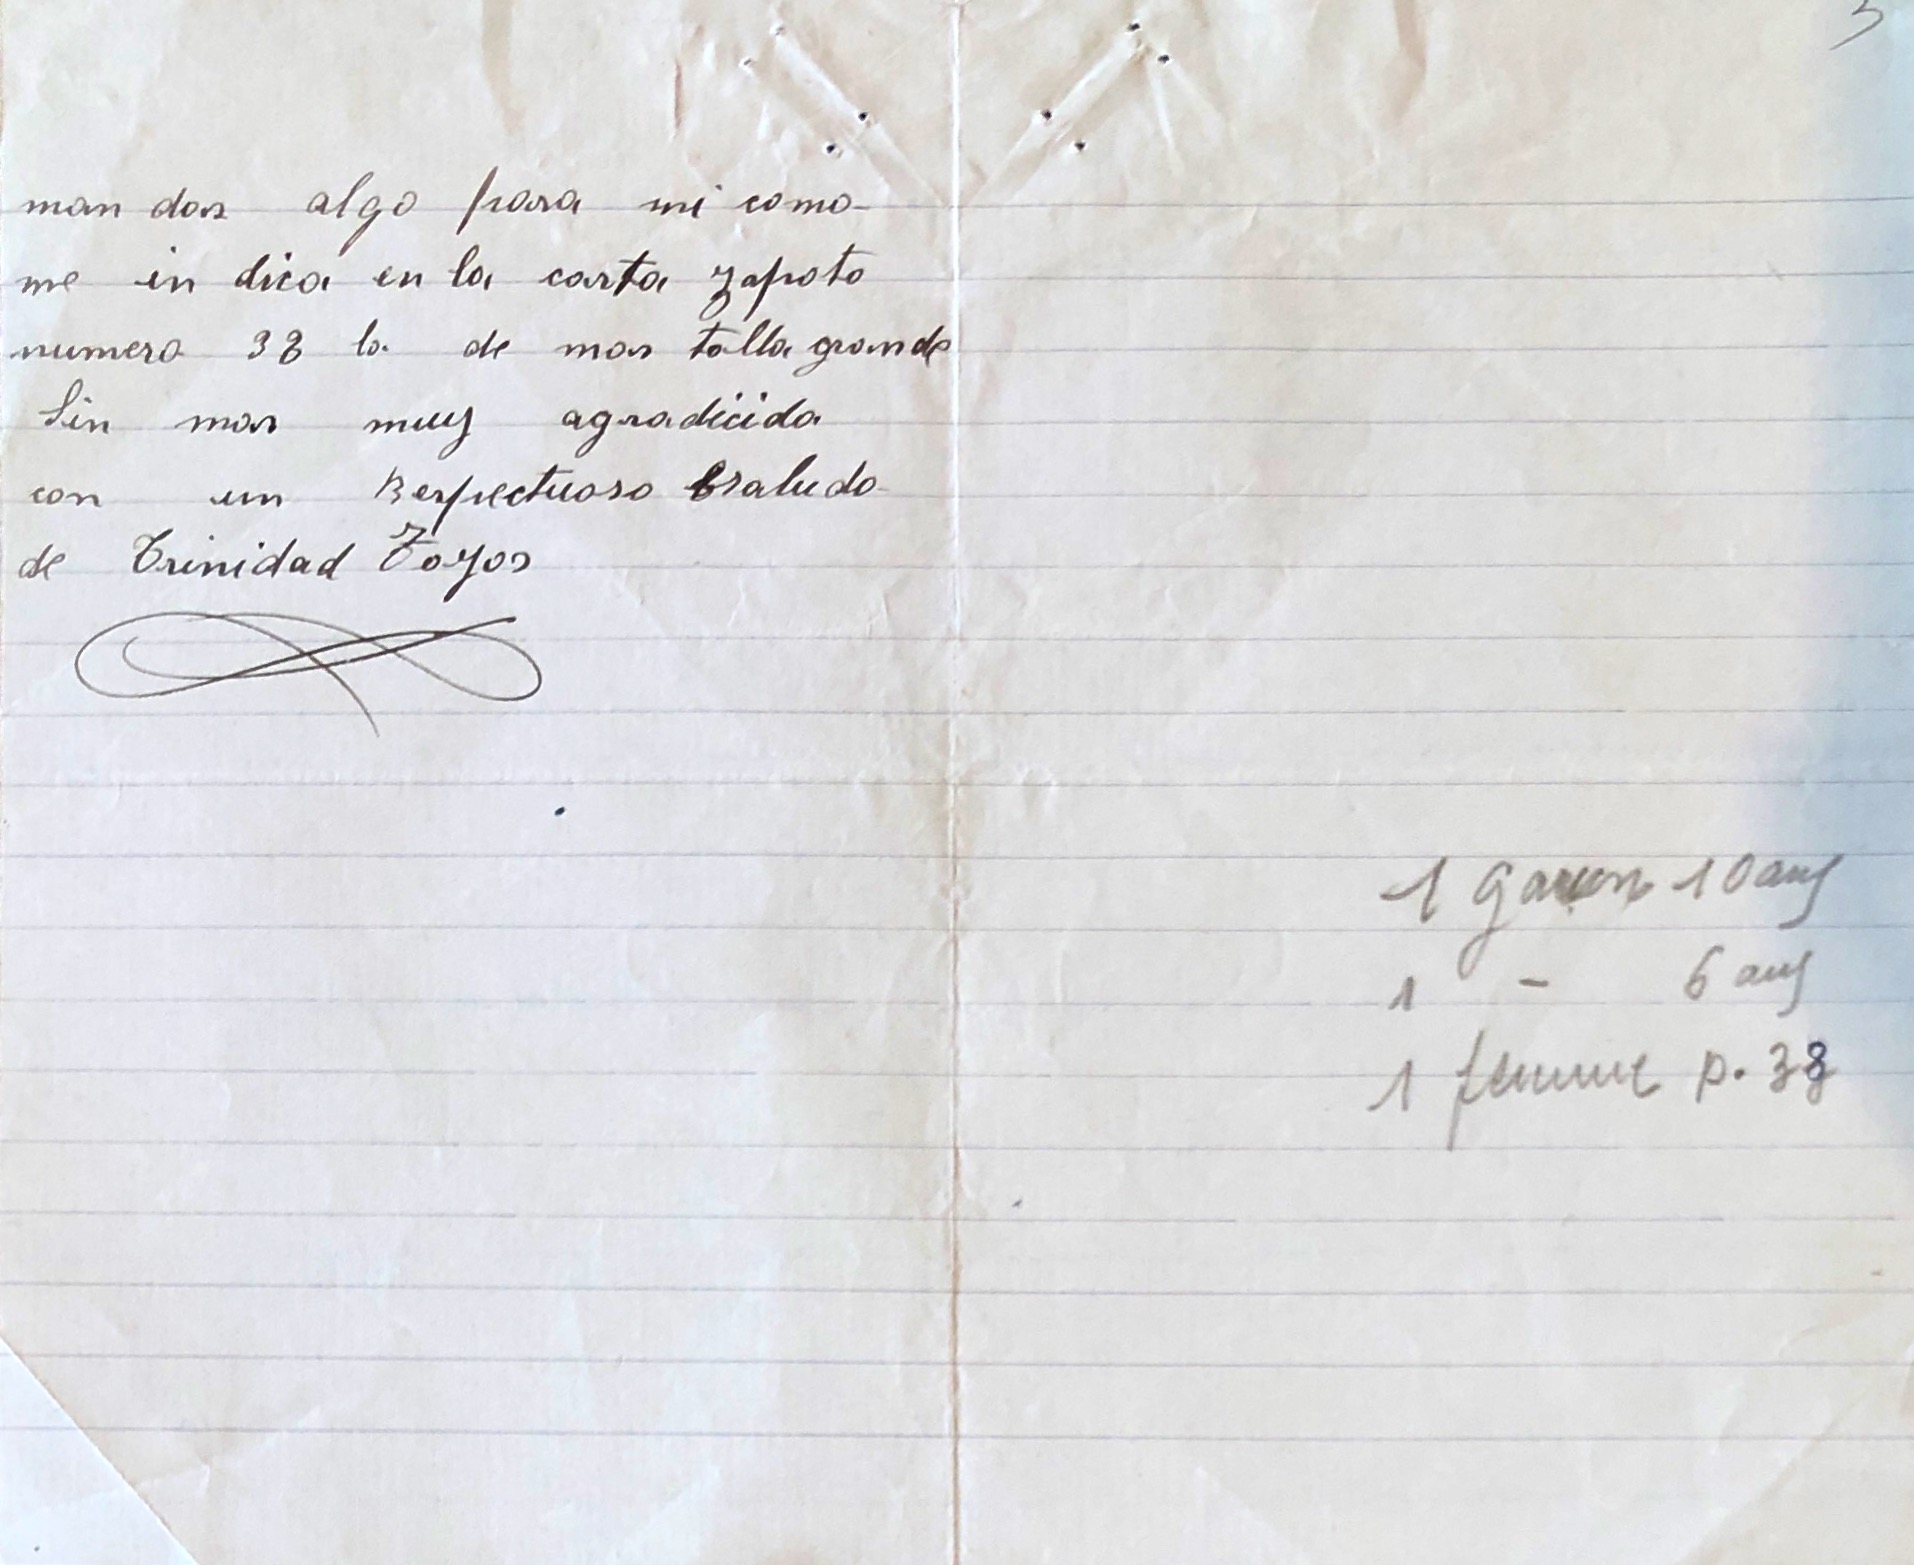 man dar algo para mi como
me in dica en la carta zapato
numero 38 la de mas talla grande
Sin mas muy agradicida
con un Respectuoso saludo
de Trinidad Toyos
1 garçon 10 ans
1 - 6 ans
1 femme p. 38